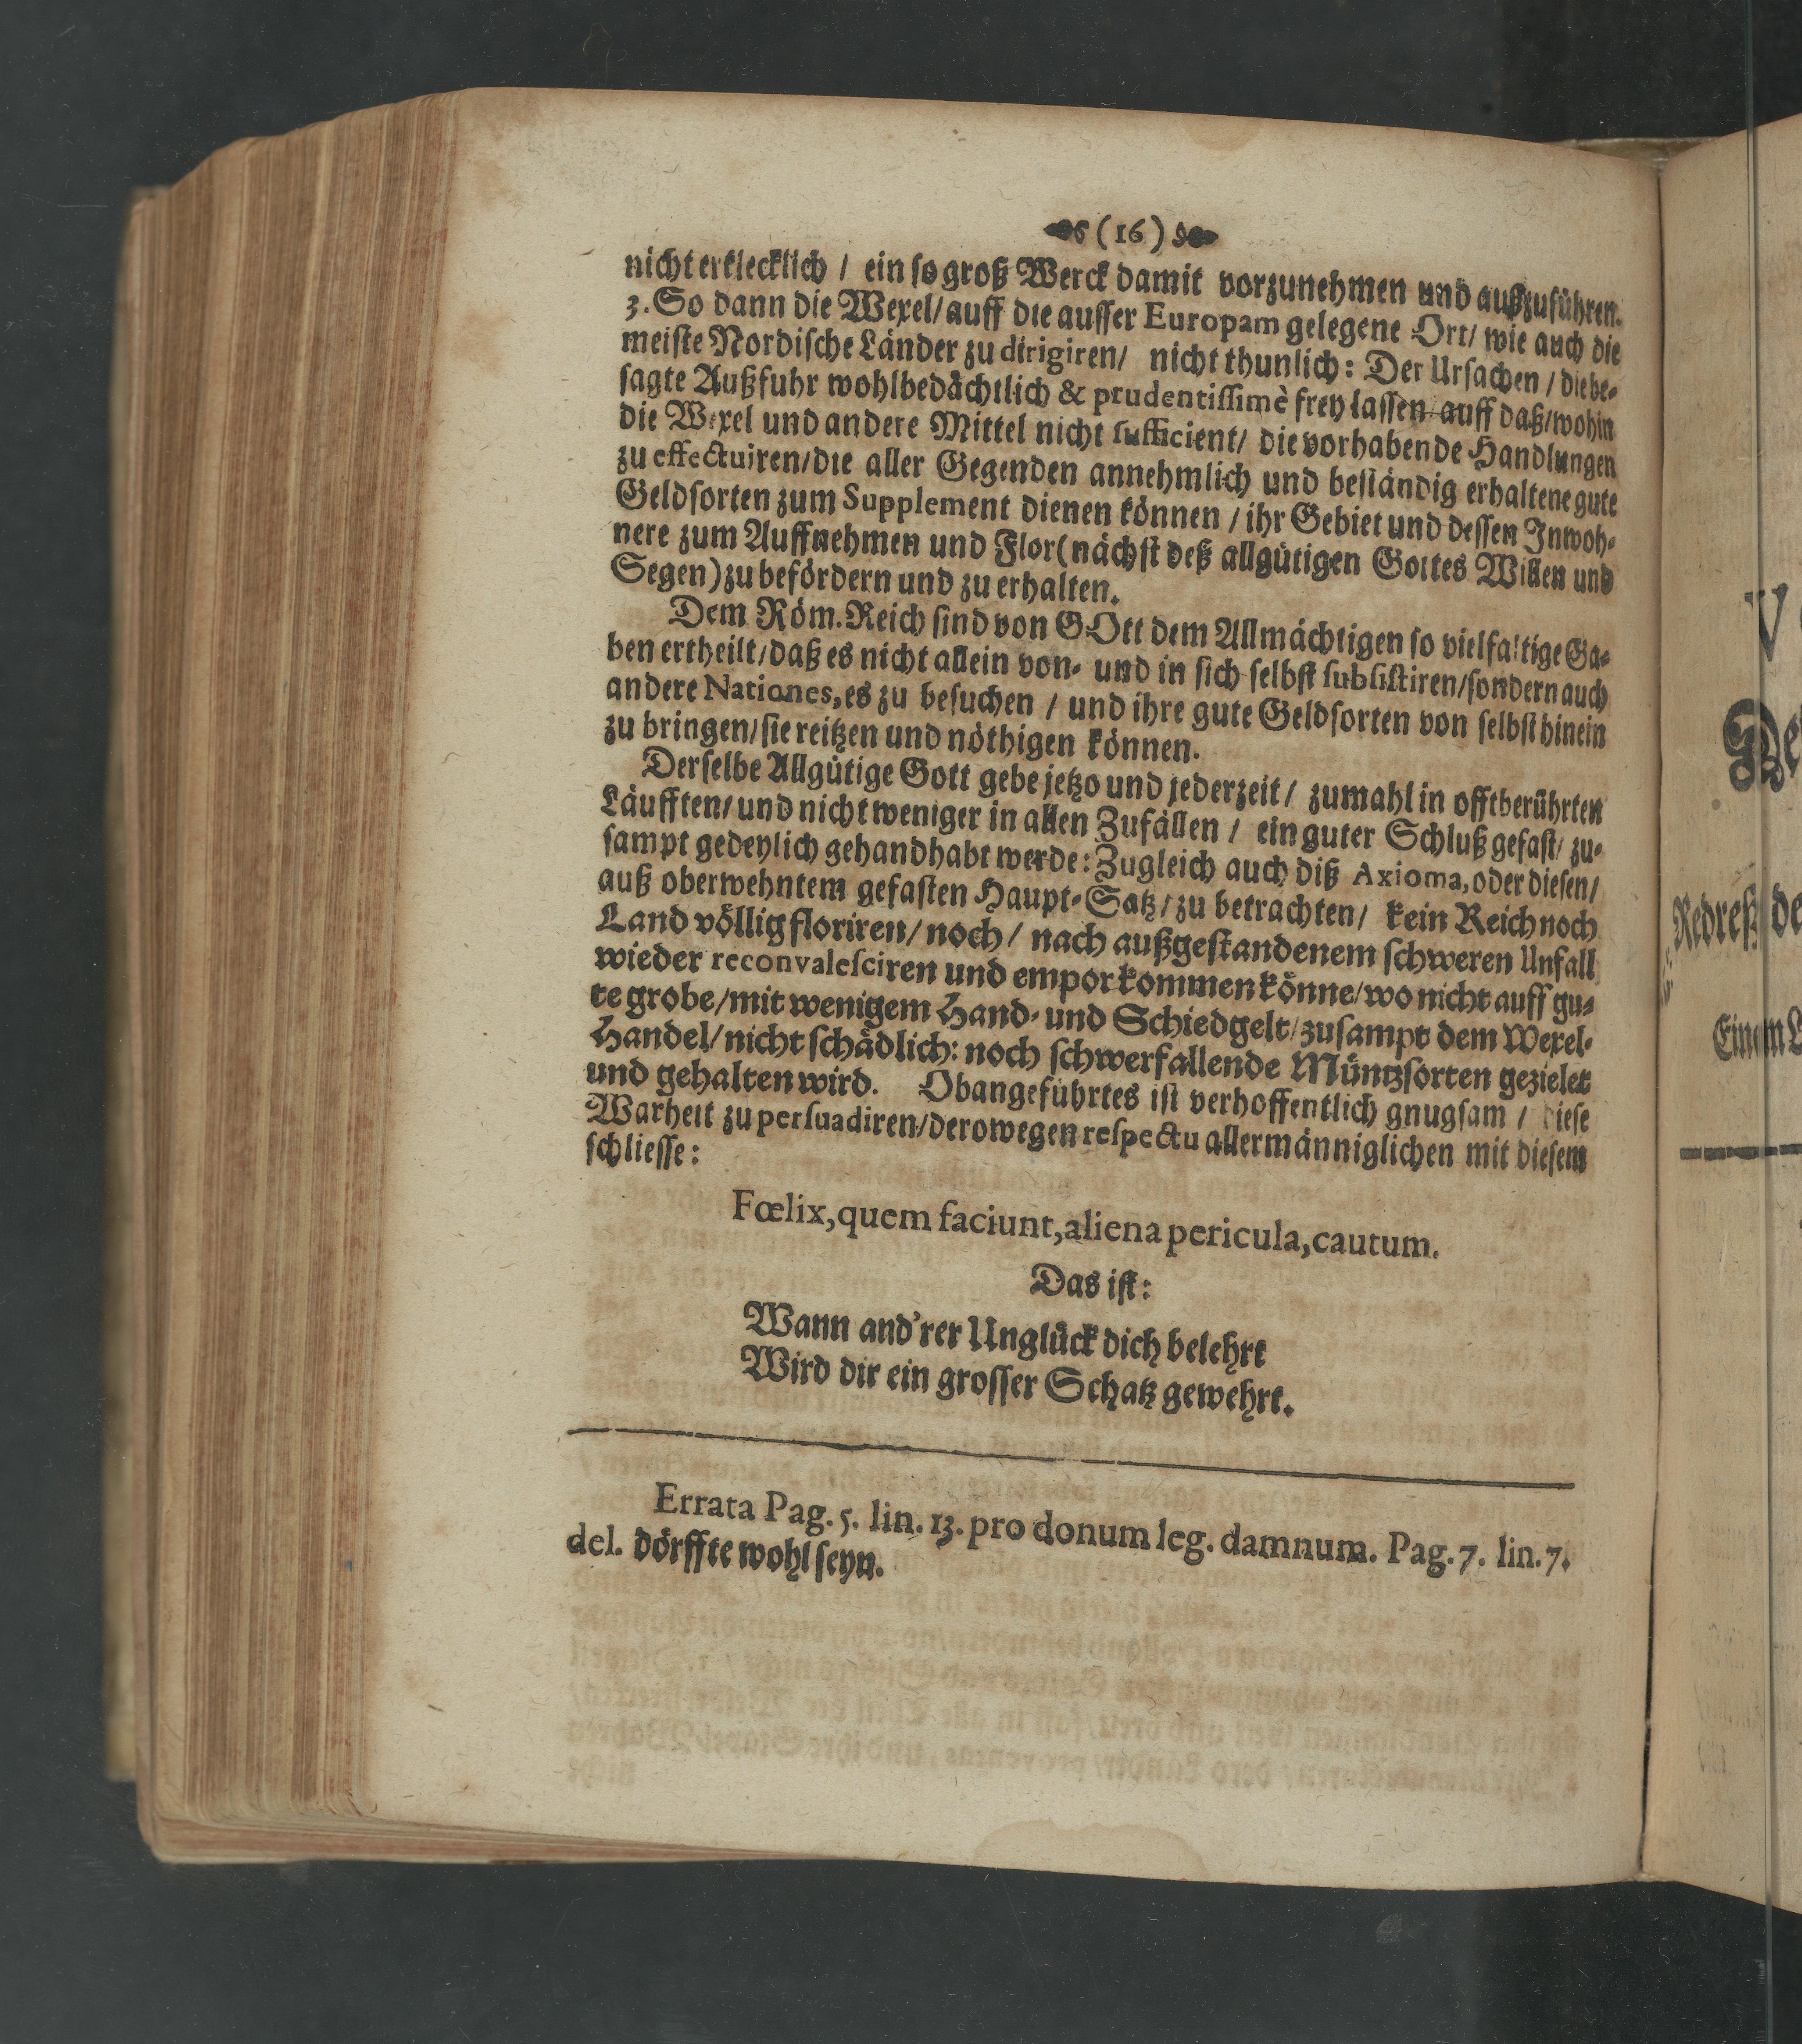 (16)
nicht erklecklich / ein so groß Werck damit vorzunehmen und außzuführen.
3. So dann die Wexel/ auff die ausser Europam gelegene Ort/ wie auch die
meiste Nordische Länder zu dirigiren/ nicht thunlich: Der Ursachen / die be-
sagte Außfuhr wohlbedächtlich & prudentissimè frey lassen/ auff daß/ wohin
die Wexel und andere Mittel nicht sufficient/ die vorhabende Handlungen
zu effectuiren/ die aller Gegenden annehmlich und beständig erhaltene gute
Geldsorten zum Supplement dienen können / ihr Gebiet und dessen Inwoh-
nere zum Auffnehmen und Flor (nächst deß allgütigen Gottes Willen und
Segen) zu befördern und zu erhalten.
Dem Röm. Reich sind von GOtt dem Allmächtigen so vielfaltige Ga-
ben ertheilt/ daß es nicht allein von- und in sich selbst subsistiren/ sondern auch
andere Nationes, es zu besuchen / und ihre gute Geldsorten von selbst hinein
zu bringen/ sie reitzen und nöthigen können.
Derselbe Allgütige Gott gebe jetzo und jederzeit / zumahl in offtberührten
Läufften/ und nicht weniger in allen Zufällen / ein guter Schluß gefast/ zu-
sampt gedeylich gehandhabt werde: Zugleich auch diß Axioma, oder diesen/
auß oberwehntem gefasten Haupt-Satz/ zu betrachten/ kein Reich noch
Land völlig floriren/ noch / nach außgestandenem schweren Unfall
wieder reconvalesciren und empor kommen könne/ wo nicht auff gu-
te grobe/ mit wenigem Hand- und Schiedgelt/ zusampt dem Wexel-
Handel/ nicht schädlich: noch schwerfallende Müntzsorten gezielet
und gehalten wird. Obangeführtes ist verhoffentlich gnugsam / diese
Warheit zu persuadiren/ derowegen respectu allermänniglichen mit diesem
schliesse:
Fœlix, quem faciunt, aliena pericula, cautum.
Das ist:
Wann and'rer Unglück dich belehrt
Wird dir ein grosser Schatz gewehrt.
Errata Pag. 5. lin. 13. pro donum leg. damnum. Pag. 7. lin. 7.
del. dörffte wohl seyn.
Redreß de